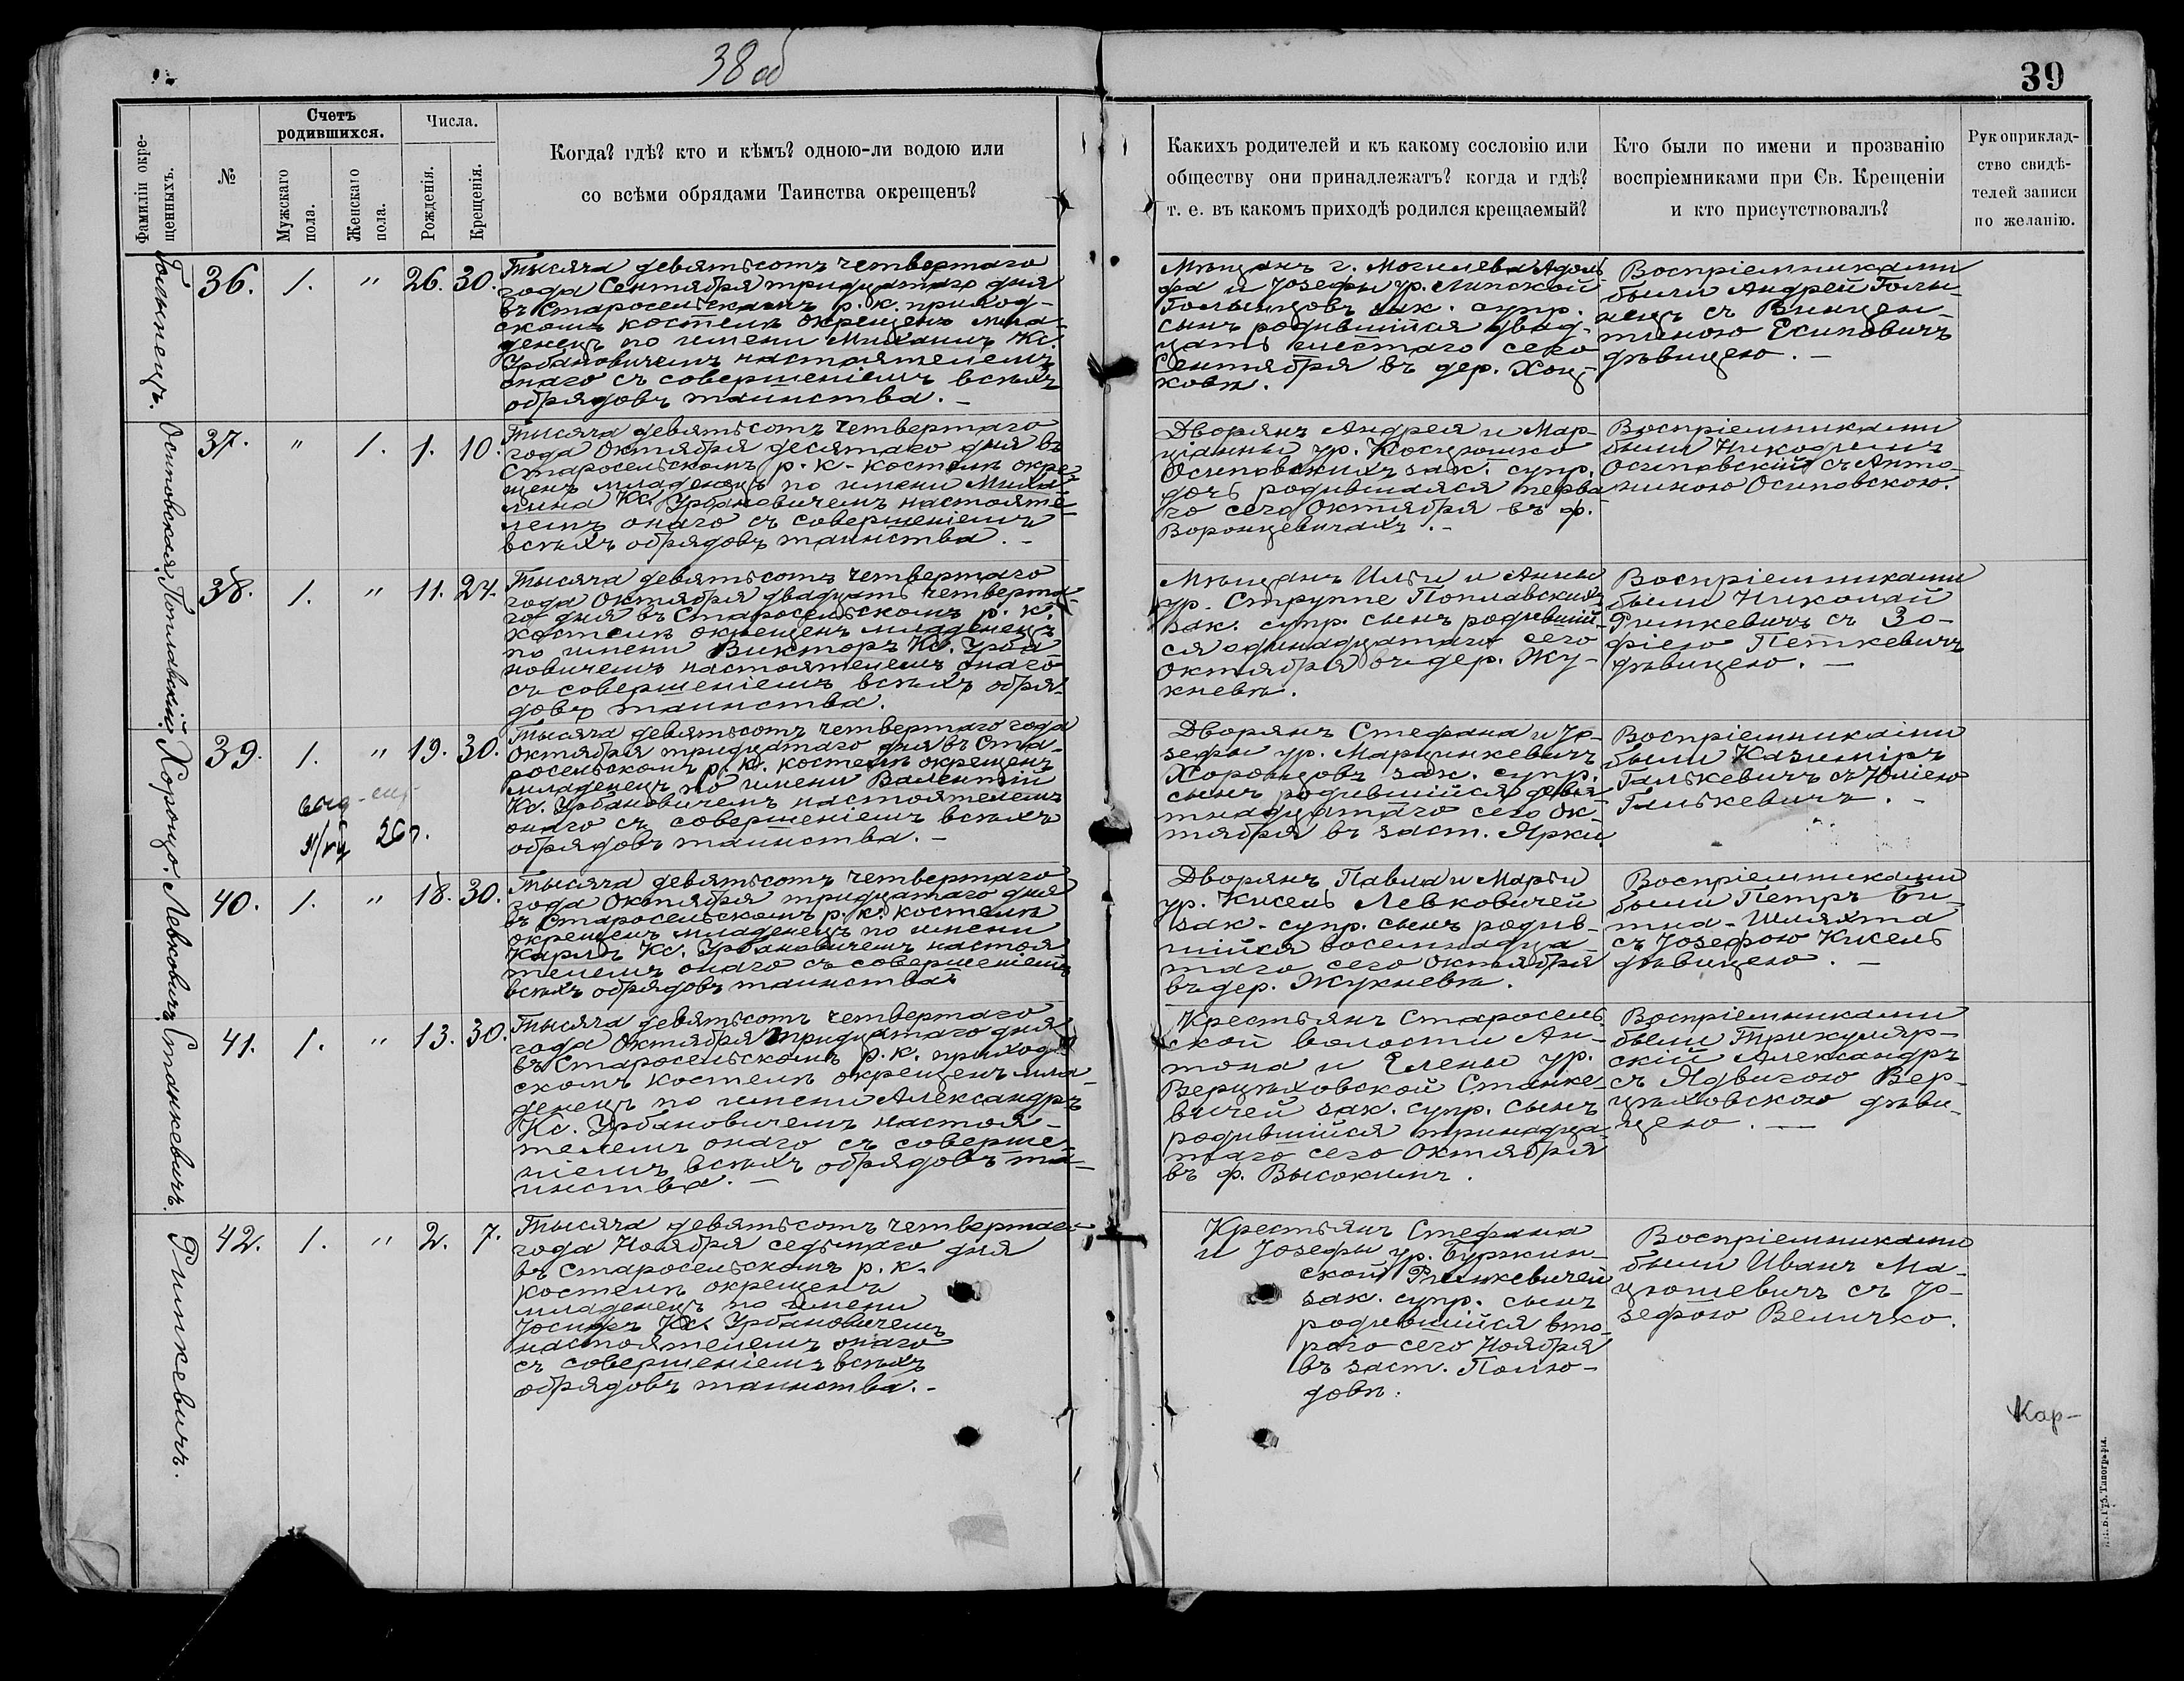 38 об
39
Фамиліи окре-
щенныхъ.
№
Счетъ
родившихся.
Мужскаго
пола.
Женскаго
пола.
Числа.
Рожденія.
Крещенія.
Когда? гдѣ? кто и кѣмъ? одною-ли водою или
со всѣми обрядами Таинства окрещенъ?
Какихъ родителей и къ какому сословію или
обществу они принадлежатъ? когда и гдѣ?
т. е. въ какомъ приходѣ родился крещаемый?
Кто были по имени и прозванію
воспріемниками при Св. Крещеніи
и кто присутствовалъ?
Рукоприклад-
ство свидѣ-
телей записи
по желанію.
Голынецъ.
36. 1. " 26. 30.
Тысяча девятьсотъ четвертаго
года Сентября тридцатаго дня
въ Старосельскомъ р. к. приход-
скомъ костелѣ окрещенъ мла-
денецъ по имени Михаилъ Кс.
Урбановичемъ настоятелемъ
онаго съ совершеніемъ всѣхъ
обрядовъ таинства. –
Мѣщанъ г. Могилева Адоль
фа и Іозефы ур. Липской
Голынцовъ зак. супр.
сынъ родившійся двад-
цать шестаго сего
Сентября въ дер. Хоц-
ковѣ.
Воспріемниками
были Андрей Голы-
нецъ съ Винцен-
тиною Есиповичъ
дѣвицею. –
Осиповская.
37. " 1. 1. 10.
Тысяча девятьсотъ четвертаго
года Октября десятаго дня въ
Старосельскомъ р. к. костелѣ окре-
щенъ младенецъ по имени Миха-
лина Кс. Урбановичемъ настояте-
лемъ онаго съ совершеніемъ
всѣхъ обрядовъ таинства. –
Дворянъ Андрея и Мар-
ціанны ур. Косцюшко
Осиповскихъ зак. супр.
дочь родившаяся перва
го сего Октября въ ф.
Воронцевичахъ. –
Воспріемниками
были Никодимъ
Осиповскій съ Анто-
ниною Осиповскою.
Поплавскій.
38. 1. " 11. 24.
Тысяча девятьсотъ четвертаго
года Октября двадцать четверта-
го дня въ Старосельскомъ р. к.
костелѣ окрещенъ младенецъ
по имени Викторъ Кс. Урба
новичемъ настоятелемъ онаго
съ совершеніемъ всѣхъ обря-
довъ таинства.
Мѣщанъ Ильи и Анны
ур. Струппе Поплавскихъ
зак. супр. сынъ родившій-
ся одинадцатаго сего
Октября въ дер. Жу-
кневѣ.
Воспріемниками
были Николай
Ринкевичъ съ Зо-
фіею Петкевичъ
дѣвицею. –
Хороцо.
39. 1. " 19. 30.
26 г.
Тысяча девятьсотъ четвертаго года
Октября тридцатаго дня въ Ста-
росельскомъ р. к. костелѣ окрещенъ
младенецъ по имени Валентій
Кс. Урбановичемъ настоятелемъ
онаго съ совершеніемъ всѣхъ
обрядовъ таинства. –
Дворянъ Стефана и Іо-
зефы ур. Марцинкевичъ
Хороцовъ зак. супр.
сынъ родившійся девят-
надцатаго сего Ок-
тября въ заст. Ярки
Воспріемниками
были Казиміръ
Галькевичъ съ Юліею
Галькевичъ. –
Левковичъ.
40. 1. " 18. 30.
Тысяча девятьсотъ четвертаго
года Октября тридцатаго дня
въ Старосельскомъ р. к. костелѣ
окрещенъ младенецъ по имени
Карлъ Кс. Урбановичемъ настоя
телемъ онаго съ совершеніемъ
всѣхъ обрядовъ таинства.
Дворянъ Павла и Маріи
ур. Кисель Левковичей
зак. супр. сынъ родив-
шійся восемнадца-
таго сего Октября
въ дер. Жукневѣ.
Воспріемниками
были Петръ Би-
тна-Шляхта
съ Іозефою Кисель
дѣвицею. –
Станкевичъ.
41. 1. " 13. 30.
Тысяча девятьсотъ четвертаго
года Октября тридцатаго дня
въ Старосельскомъ р. к. приход-
скомъ костелѣ окрещенъ мла-
денецъ по имени Александръ
Кс. Урбановичемъ настоя-
телемъ онаго съ соверше-
ніемъ всѣхъ обрядовъ та-
инства. –
Крестьянъ Старосель-
ской волости Ан-
тона и Елены ур.
Верцѣховской Станке-
вичей зак. супр. сынъ
родившійся тринадца-
таго сего Октября
въ ф. Высокимъ.
Воспріемниками
были Трикуляр-
скій Александръ
съ Ядвигою Вер-
цѣховскою дѣви-
цею. –
Ринкевичъ.
42. 1. " 2. 7.
Тысяча девятьсотъ четвертаго
года Ноября седьмаго дня
въ Старосельскомъ р. к.
костелѣ окрещенъ
младенецъ по имени
Іосифъ Кс. Урбановичемъ
настоятелемъ онаго
съ совершеніемъ всѣхъ
обрядовъ таинства. –
Крестьянъ Стефана
и Іозефы ур. Буржин-
ской Ринкевичей
зак. супр. сынъ
родившійся вто-
раго сего Ноября
въ заст. Полю-
довѣ.
Воспріемниками
были Иванъ Ма-
цюшевичъ съ Іо-
зефою Величко.
Кар-